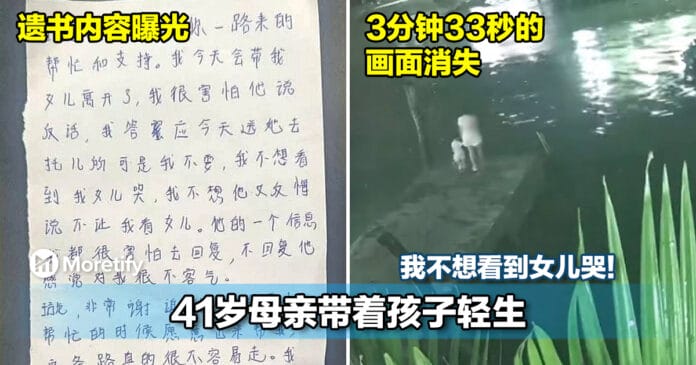 遗书内容曝光
你一路来的
帮忙和支持。我今天会带我
女儿离开了,我很害怕他说
反话,我答应今天送她去
托儿的可是我不要,我不想看
到我女儿哭,我不想他又反悔
说不让我看女儿。他的一个信息
都很害怕去回复,不回复他
对我很不客气。
非常谢
帮忙的时候愿意
路真的很不容易走。我
Moretify
3分钟33秒的
画面消失
我不想看到女儿哭!
41岁母亲带着孩子轻生